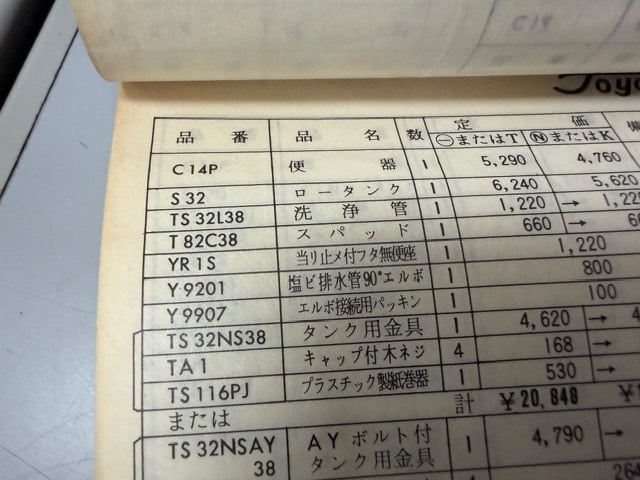 C14
Toyo
品番 品名 数 定価 備
㊀またはT Ⓝまたは K
C14P 便器 1 5,290 4,760
S 32 ロータンク 1 6,240 5,620
TS 32L38 洗浄管 1 1,220 → 1,22
T 82C38 スパッド 1 660 → 6
YR 1S 当り止メ付フタ無便座 1 1,220
Y 9201 塩ビ排水管90°エルボ 1 800
Y 9907 エルボ接続用パッキン 1 100
TS 32NS38 タンク用金具 1 4,620 → 4
TA 1 キャップ付木ネジ 4 168 →
TS 116PJ プラスチック製紙巻器 1 530 →
計 ¥20,848
または
TS 32NSAY AYボルト付 1 4,790 →
38 タンク用金具
264